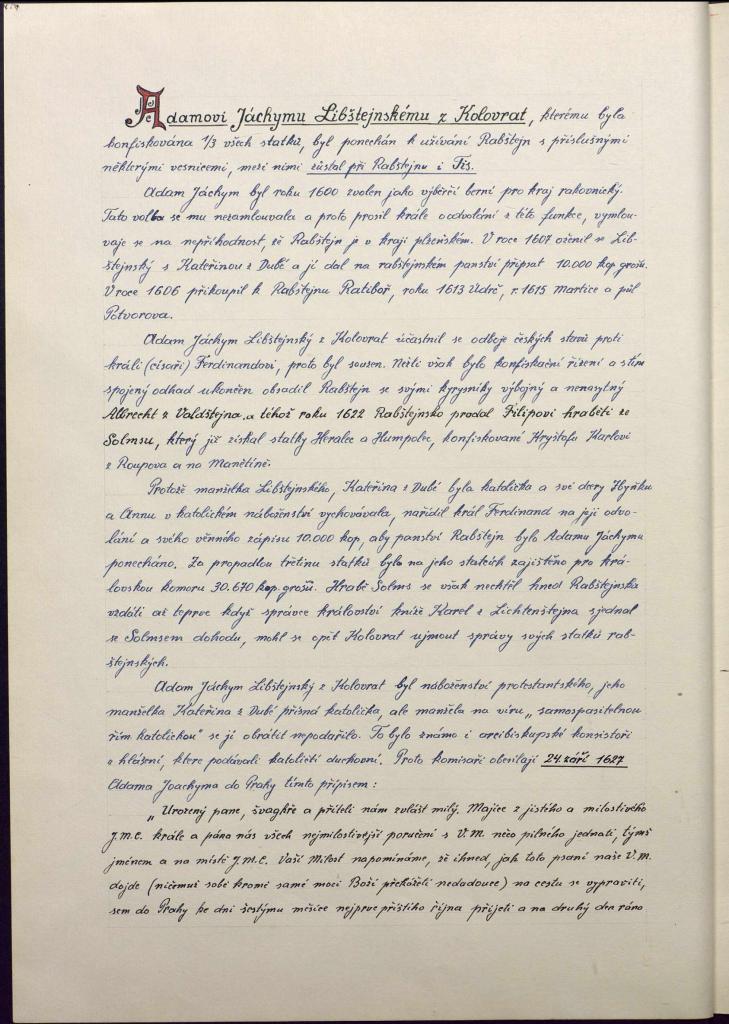 Adamovi Jáchymu Libštejnskému z Kolovrat, kterému byla
konfiskována 1/3 všech statků, byl ponechán k užívání Rabštejn s příslušnými
některými vesnicemi, mezi nimi zůstal při Rabštejnu i Tis.
Adam Jáchym byl roku 1600 zvolen jako výběrčí berní pro kraj rakovnický.
Tato volba se mu nezamlouvala a proto prosil krále o odvolání z této funkce, vymlou-
vaje se na nepříhodnost, že Rabštejn je v kraji plzeňském. V roce 1607 oženil se Lib-
štejnský s Kateřinou z Dubé a jí dal na rabštejnském panství připsat 10.000 kop grošů.
V roce 1606 přikoupil k Rabštejnu Ratiboř, roku 1613 Údrč, r. 1615 Martice a půl
Potvorova.
Adam Jáchym Libštejnský z Kolovrat účastnil se odboje českých stavů proti
králi (císaři) Ferdinandovi, proto byl souzen. Nežli však bylo konfiskační řízení a s tím
spojený odhad ukončen obsadil Rabštejn se svými kyrysníky výbojný a nenasytný
Albrecht z Valdštejna a téhož roku 1622 Rabštejnsko prodal Filipovi hraběti ze
Solmsu, který již získal statky Heralec a Humpolec, konfiskované Kryštofu Karlovi
z Roupova a na Manětíně.
Protože manželka Libštejnského, Kateřina z Dubé byla katolička a své dcery Hyňku
a Annu v katolickém náboženství vychovávala, nařídil král Ferdinand na její odvo-
lání a svého věnného zápisu 10.000 kop, aby panství Rabštejn bylo Adamu Jáchymu
ponecháno. Za propadlou třetinu statků bylo na jeho statcích zajištěno pro krá-
lovskou komoru 30.670 kop grošů. Hrabě Solms se však nechtěl hned Rabštejnska
vzdáti až teprve když správce království kníže Karel z Lichtenštejna sjednal
se Solmsem dohodu, mohl se opět Kolovrat ujmout správy svých statků rab-
štejnských.
Adam Jáchym Libštejnský z Kolovrat byl náboženství protestantského, jeho
manželka Kateřina z Dubé přísná katolička, ale manžela na víru „samospasitelnou
řím. katolickou" se jí obrátit nepodařilo. To bylo známo i arcibiskupské konsistoři
z hlášení, které podávali katoličtí duchovní. Proto komisaři obesílají 24. září 1627
Adama Joachyma do Prahy tímto přípisem:
„Urozený pane, švagře a příteli nám zvlášt milý. Majíce z jistého a milostivého
J.M.C. krále a pána nás všech nejmilostivější poručení s V.M. něco pilného jednati, týmž
jménem a na místě J.M.C. Vaší Milost napomínáme, že ihned, jak toto psaní naše V.M.
dojde (ničemuž sobě kromě samé moci Boží překážeti nedadouce) na cestu se vypraviti,
sem do Prahy ke dni šestýmu měsíce nejprve příštího října přijeti a na druhý den ráno